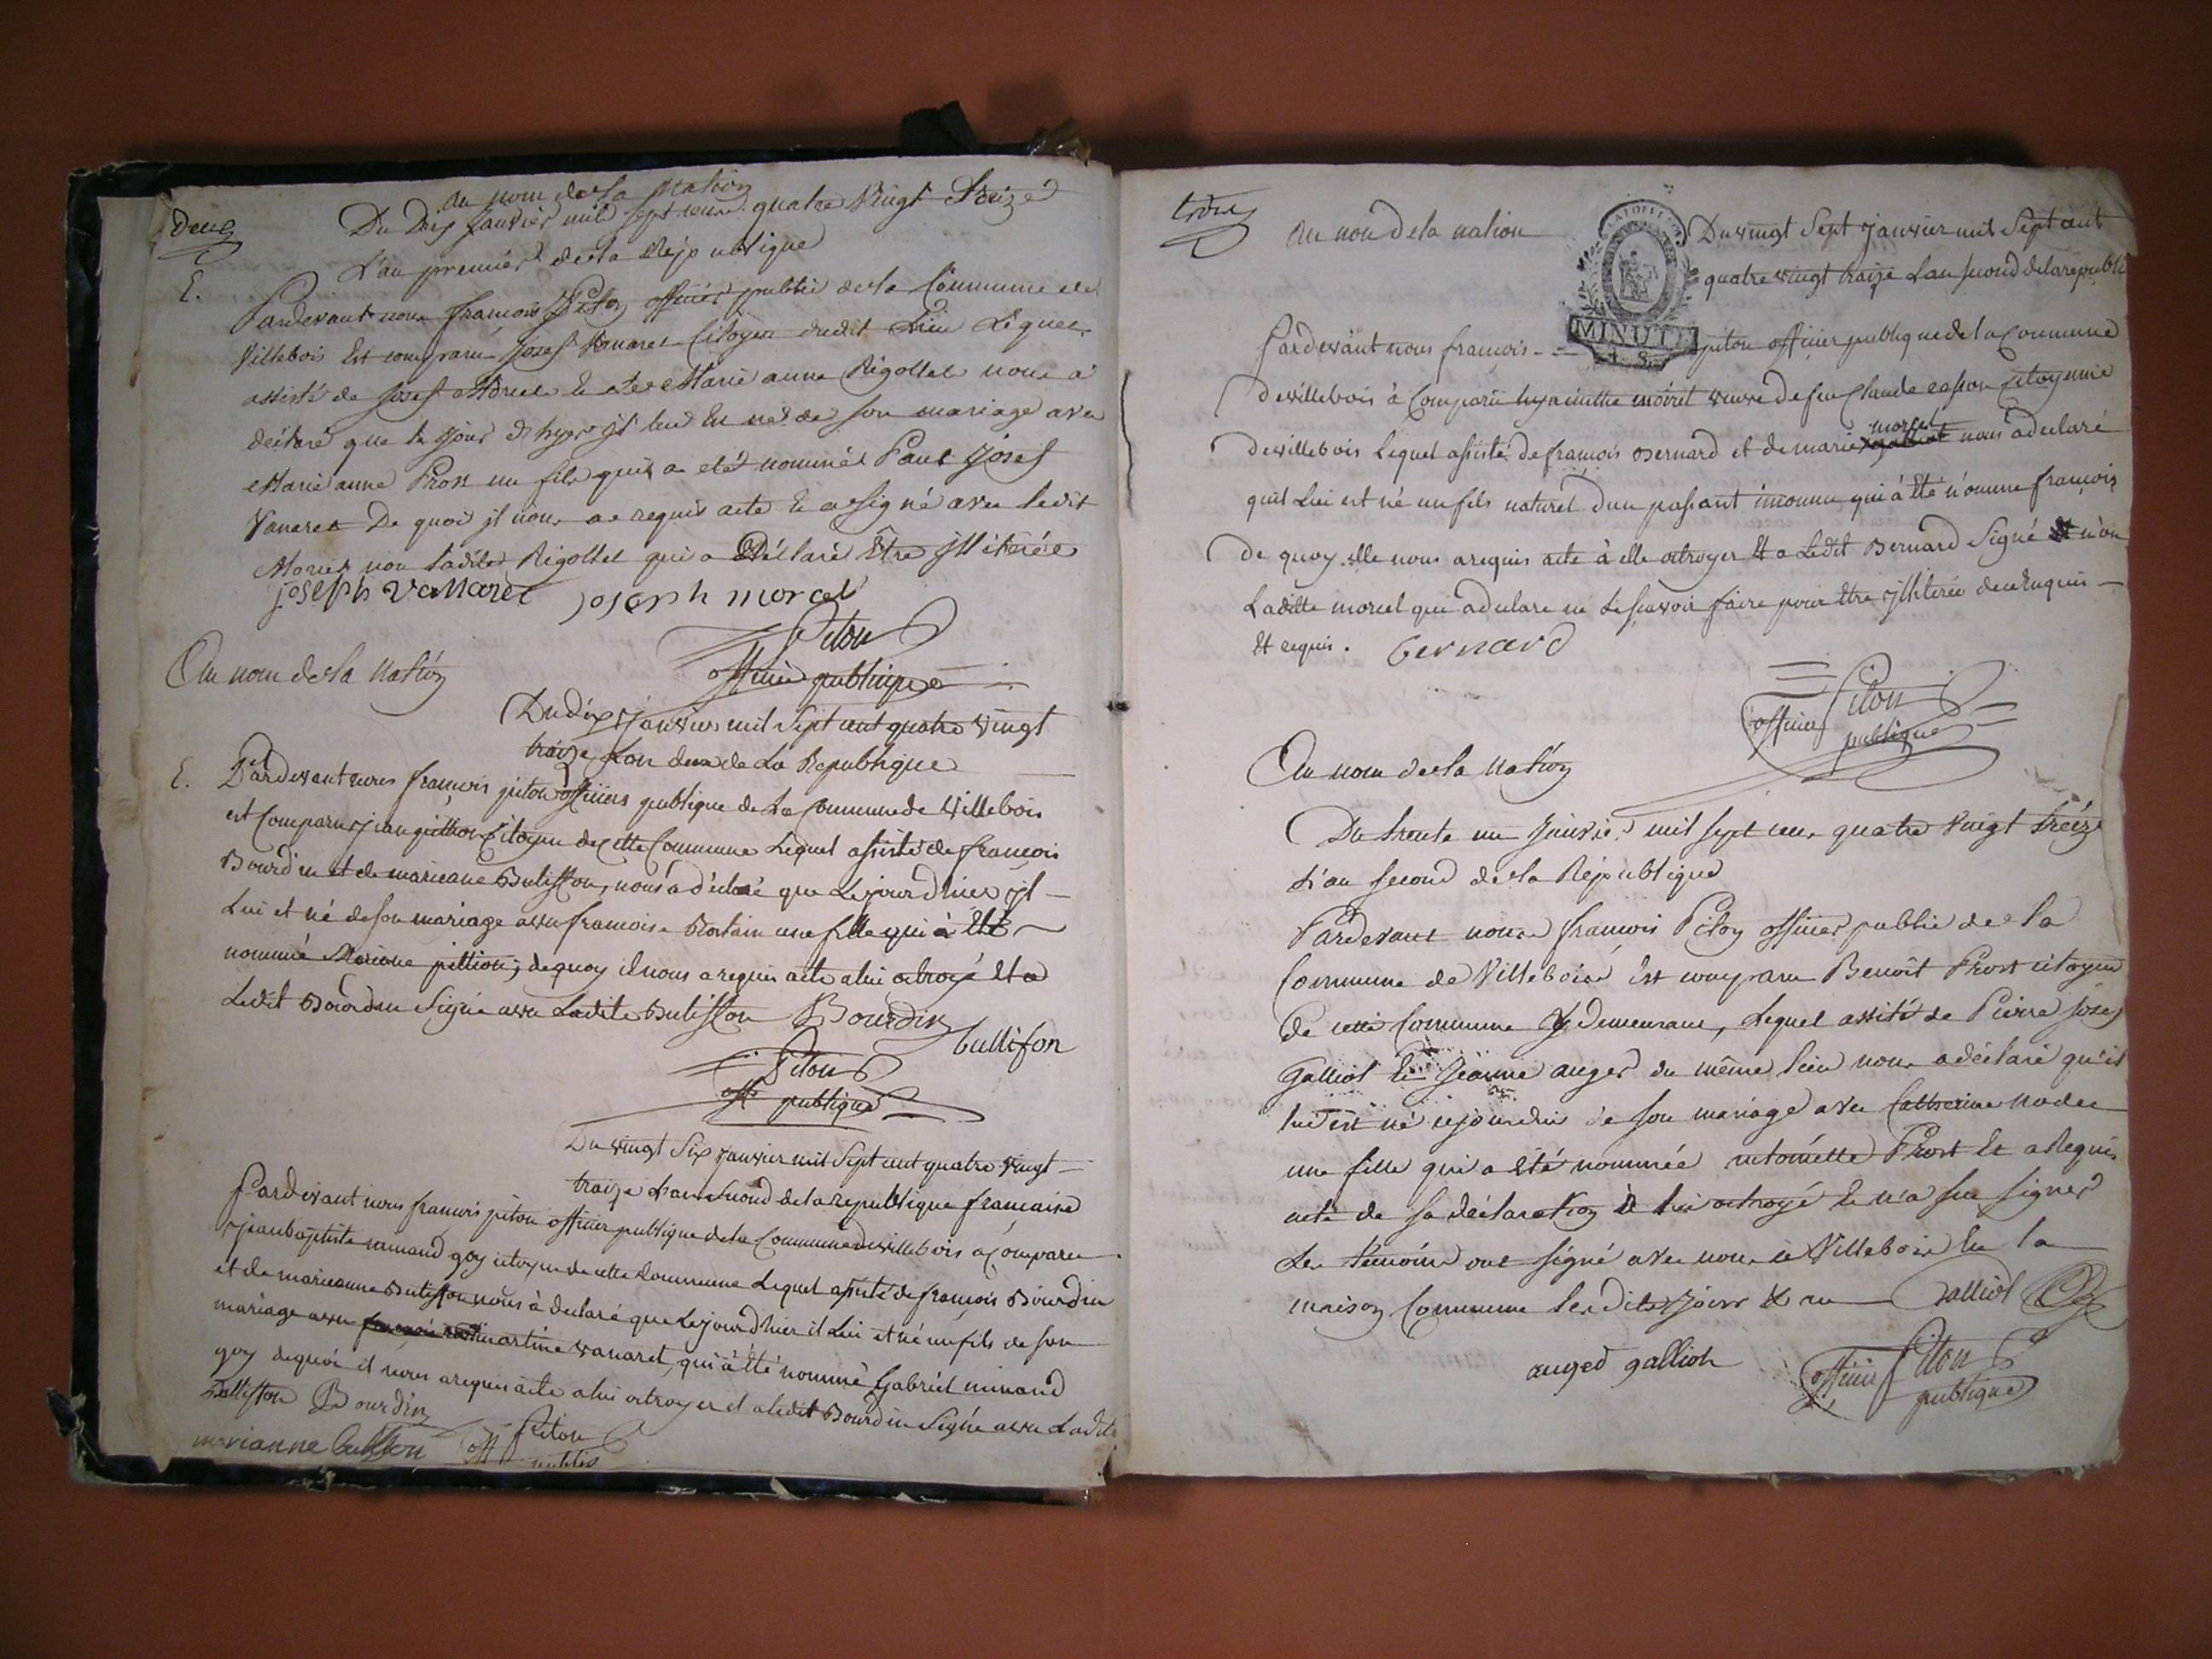 deux
au nom de la Nation
Du Dix Janvier mil sept cens quatre Vingt Treize
L'an premier de la République
E.
Pardevant nous françois Piton officier public de la Commune de
Villebois Est comparu Josef Vanaret Citoyen dudit Lieu Lequel
assisté de Josef Morel & de Marie anne Rigollet nous a
déclaré que le jour d'hyer il lui Est né de son mariage avec
Marie anne Prost un fils qui a eté nommé Paul Josef
Vanaret De quoi il nous a requis acte & a signé avec ledit
Morel non ladite Rigollet qui a Déclaré Être illiterée
joseph vanaret joseph morel
Piton
officier publique
Au nom de la Nation
Du dix janvier mil Sept cent quatre vingt
traize L'an deux de La Republique
E.
Pardevant nous françois piton officiers publique de La Commune de Villebois
est Comparu jean pittion Citoyen de cette Commune Lequel assisté de françois
Bourdin et de marieane Bulisson, nous a déclaré que Le jour d'hier jl
Lui et né de son mariage avec francoise Rostain une fille qui à Eté
nommé Mariane pittion, de quoy il nous a requis acte a lui octroyé Et a
Ledit Bourdin Signé avec Ladite Bulisson Bourdin
bullifon
Piton
off publique
Du vingt Six janvier mil Sept cent quatre vingt
traize L'an Second de la republique francaise
Pardevant nous francois piton officier publique de la Commune de villebois a Comparu
jeanbaptiste minand goy citoyen de cette Commune Lequel assisté de françois Bourdin
et de marieanne Bulisson nous à declaré que Le jour d'hier il Lui et né un fils de son
mariage avec martine vanaret, qui à Eté nommé Gabriel minand
goy de quoi il nous a requis acte a lui octroyer et a ledit Bourdin Signé avec Ladite
Bullisson Bourdin
marianne bulisson Piton
off publis
trois
Au nom De la nation
MINUTE
Du vingt Sept janvier mil Sept cent
quatre vingt traize L'an second de la republi
Pardevant nous françois piton officier publique de la Commune
de villebois à Comparu hyacinthe moiret veuve de feu Claude casson Citoyenne
morcel
de villebois Lequel assisté de françois Bernard et de marie galliot nous a declaré
quil Lui est né un fils naturel d'un passant inconnu qui à Eté nommé françois
de quoy elle nous a requis acte à elle octroyer Et a Ledit Bernard Signé Et non
Ladite morcel qui a declare ne Le scavoir faire pour Etre jlliterée de ce Enquis
Et requis. Bernard
Piton
officier publique
Au nom de la Nation
Du trente un Janvier mil sept cens quatre Vingt treize
L'an second de la République
Pardevant nous françois Piton officier public de la
Commune de Villebois Est comparu Benoît Prost citoyen
de cette Commune y demeurant, Lequel assité de Pierre Josef
Galliot & Jeanne auger du même lieu nous a déclaré qu'il
lui est né cejourdui de son mariage avec Catherine Nodet
une fille qui a Eté nommée antoinette Prost & a Requis
acte de sa déclaration à lui octroyé & n'a su signer
Les témoins ont signé avec nous à Villebois En la
maison Commune les dits jours & an Galliot
auged galliot
Piton
officier publique